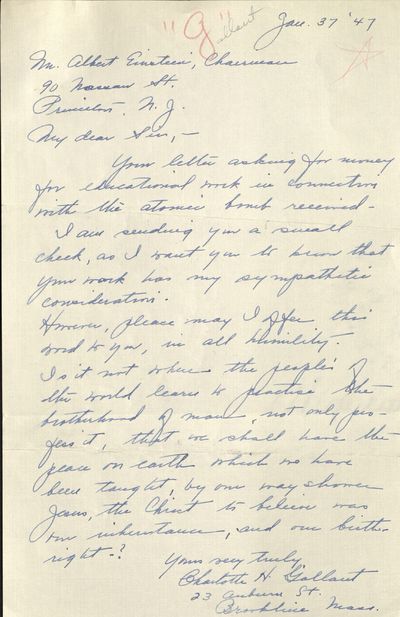 "G"allant
Jan. 37 '47
Mr. Albert Einstein, Chairman
90 Nassau St.
Princeton, N. J.
My dear Sir, —
Your letter asking for money
for educational work in connection
with the atomic bomb received -
I am sending you a small
check, as I want you to know that
your work has my sympathetic
consideration.
However, please may I offer this
word to you, in all humility.
Is it not when the people's of
the world learn to practise the
brotherhood of man, not only pro-
fess it, that we shall have the
peace on earth which we have
been taught, by our way shower
Jesus, the Christ to believe was
our inheritance, and our birth-
right -?
Yours very truly,
Charlotte H. Gallant
23 Auburn St.
Brookline Mass.